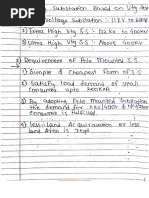 Substation Based on Vtg lev
Voltage Substation : 11 KV to 66KV
2) Extra High Vtg S.S : 132 KV to 400KV
3) Ultra High Vtg S.S : Above 400KV
2) Requirement of Pole Mounted S.S
1) Simple & Cheapest Form of S.S
2) Satisfy load demand of small
consumers upto 200KVA
3) By adopting Pole Mounted Substation
the demand for
consumer is fulfilled
4) Less land Acquisition or less
land Area is req